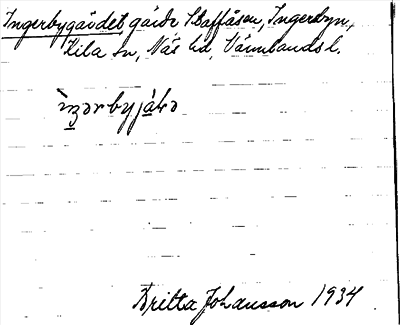 Ingerbygärdet, gärde Staffåsen, Ingerbyn,
Kila sn, Näs hd, Värmlands l.
Britta Johansson 1934